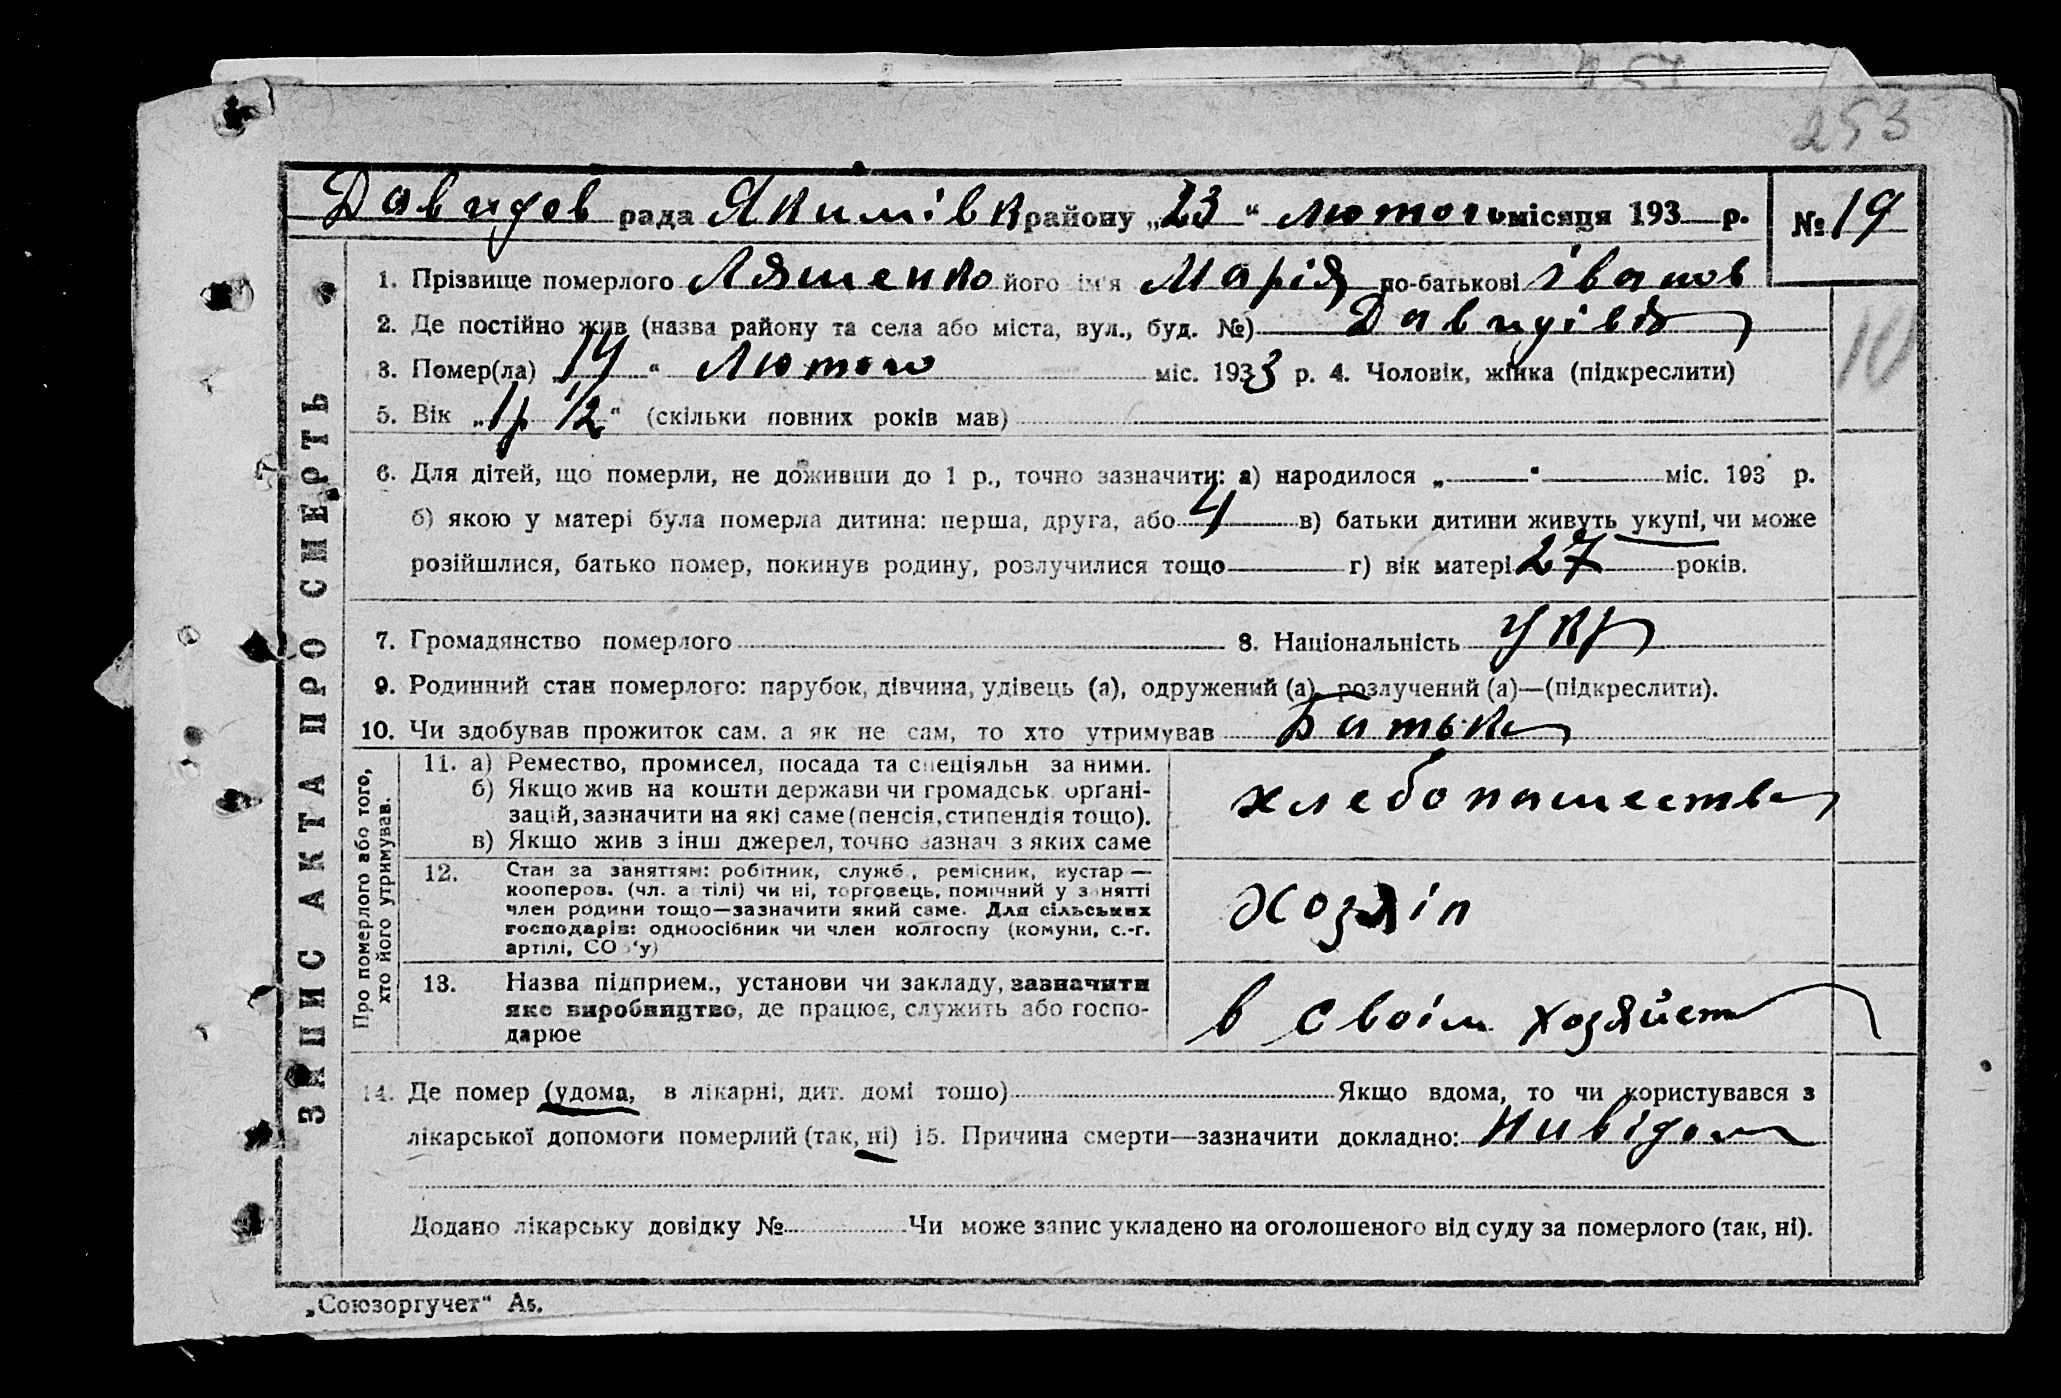 253
Давидов рада Якимівк району „23“ лютого місяця 193 р. № 19
1. Прізвище померлого Ляшенко його ім'я Марія по-батькові Іванов
2. Де постійно жив (назва району та села або міста, вул., буд. №) Давидівка
10
3. Помер(ла) „14“ Лютого міс. 1933 р. 4. Чоловік, жінка (підкреслити)
5. Вік „1р 1/2“ (скільки повних років мав)
6. Для дітей, що померли, не доживши до 1 р., точно зазначити: а) народилося „ “ міс. 193 р.
б) якою у матері була померла дитина: перша, друга, або 4 в) батьки дитини живуть укупі, чи може
розійшлися, батько помер, покинув родину, розлучилися тощо г) вік матері 27 років.
7. Громадянство померлого 8. Національність укр
9. Родинний стан померлого: парубок, дівчина, удівець (а), одружений (а), розлучений (а)—(підкреслити).
10. Чи здобував прожиток сам, а як не сам, то хто утримував Батько
ЗАПИС АКТА ПРО СМЕРТЬ
Про померлого або того,
хто його утримував.
11. а) Ремество, промисел, посада та спеціяльн за ними.
б) Якщо жив на кошти держави чи громадськ. органі-
зацій, зазначити на які саме (пенсія, стипендія тощо).
в) Якщо жив з інш джерел, точно зазнач з яких саме
хлебопашество
12. Стан за заняттям: робітник, служб., ремісник, кустар —
кооперов. (чл. артілі) чи ні, торговець, помічний у занятті
член родини тощо—зазначити який саме. Для сільських
господарів: одноосібник чи член колгоспу (комуни, с.-г.
артілі, СОЗ'у)
Хозяін
13. Назва підприєм., установи чи закладу, зазначити
яке виробництво, де працює, служить або госпо-
дарює
в своім хозяйст
14. Де помер (удома, в лікарні, дит. домі тощо) Якщо вдома, то чи користувався з
лікарської допомоги померлий (так, ні) 15. Причина смерти—зазначити докладно: Нивідом
Додано лікарську довідку № Чи може запис укладено на оголошеного від суду за померлого (так, ні).
„Союзоргучет“ А5.